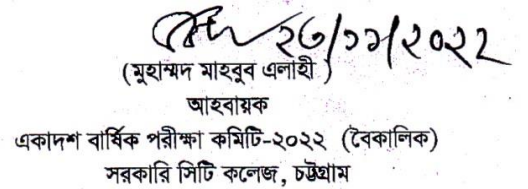 ২৩/১১/২০২২
(মুহাম্মদ মাহবুব এলাহী )
আহবায়ক
একাদশ বার্ষিক পরীক্ষা কমিটি-২০২২ (বৈকালিক)
সরকারি সিটি কলেজ, চট্টগ্রাম